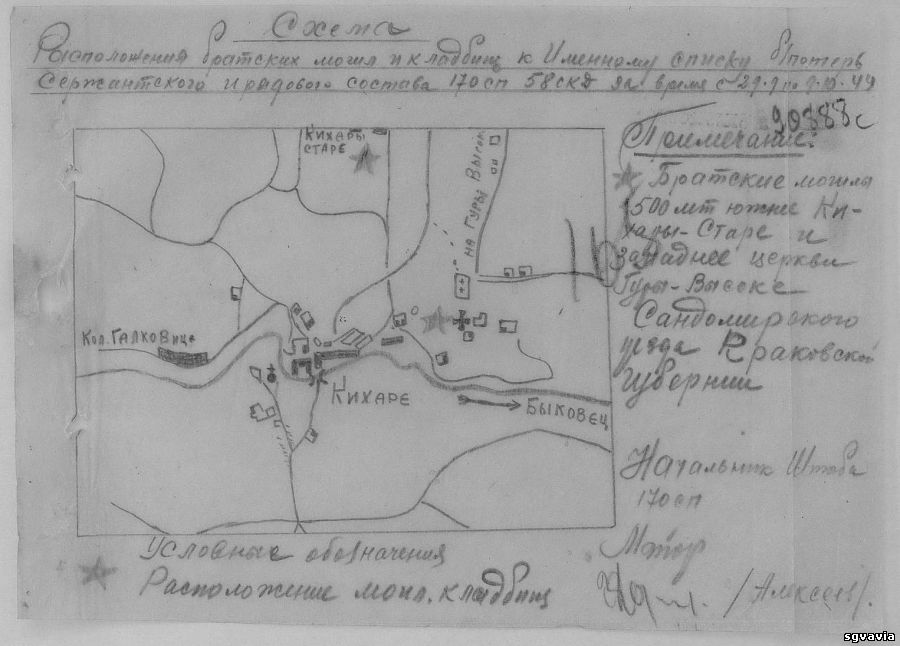 Схема
Расположения братских могил и кладбищ к Именному списку потерь
Сержантского и рядового состава 170сп 58скд за время с 29.9 по 9.10.44
90888с
Примечание:
Братские могилы
1500 мт южнее Ки-
хары-Старе и
западнее церкви
Гуры-Высоке
Сандомирского
уезда Краковской
губернии
Кихары
старе
на Гуры Высок
Кол. Галковице
Кихаре
Быковец
Начальник Штаба
170сп
Майор
/Алексеев/.
Условные обозначения
Расположение могил, кладбищ
sgvavia